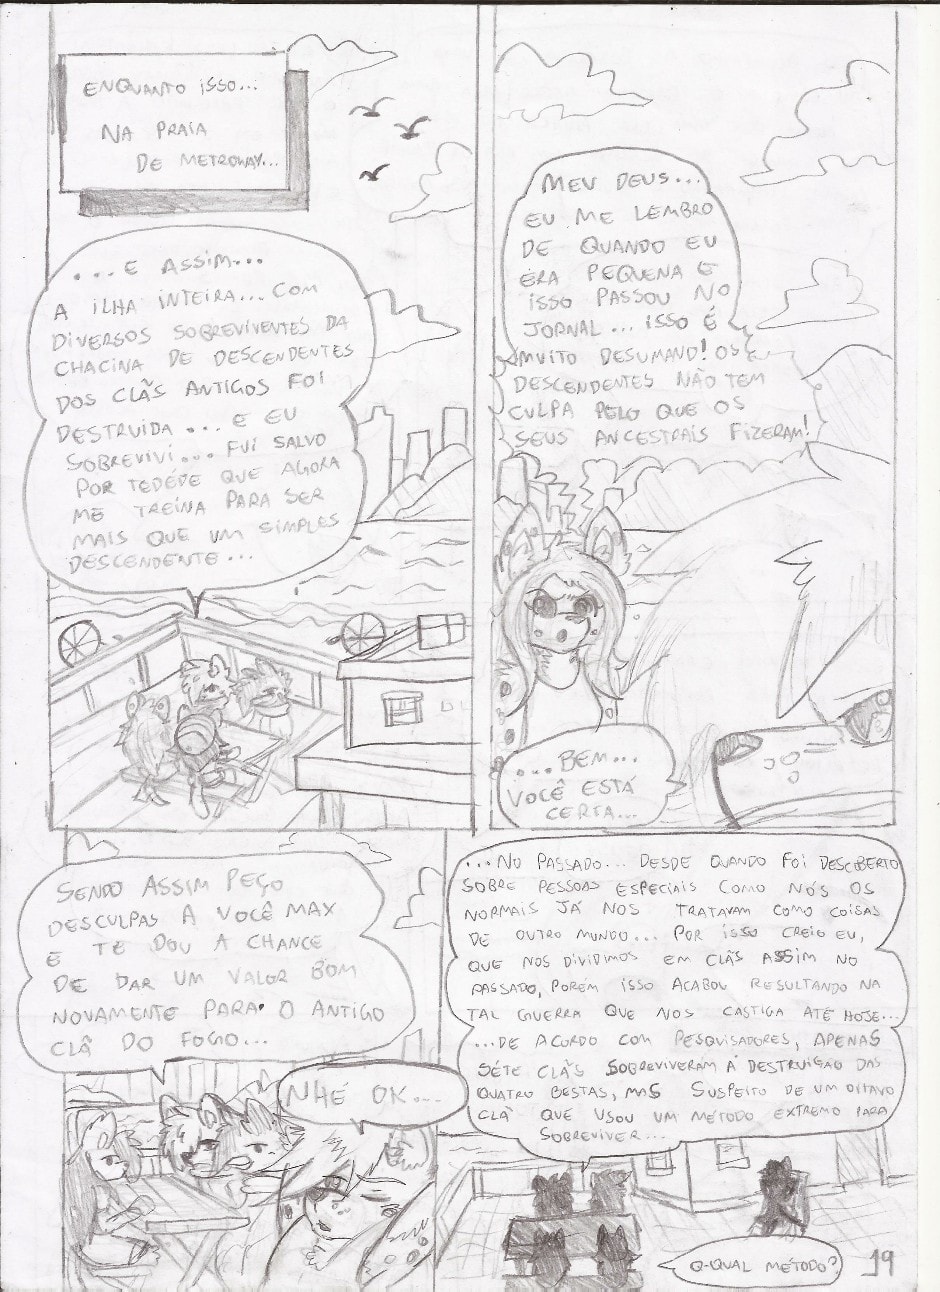 ENQUANTO ISSO...
NA PRAIA
DE METROWAY...
...E ASSIM...
A ILHA INTEIRA... COM
DIVERSOS SOBREVIVENTES DA
CHACINA DE DESCENDENTES
DOS CLÃS ANTIGOS FOI
DESTRUIDA... E EU
SOBREVIVI... FUI SALVO
POR TEDÉDE QUE AGORA
ME TREINA PARA SER
MAIS QUE UM SIMPLES
DESCENDENTE...
MEU DEUS...
EU ME LEMBRO
DE QUANDO EU
ERA PEQUENA E
ISSO PASSOU NO
JORNAL... ISSO É
MUITO DESUMANO! OS
DESCENDENTES NÃO TEM
CULPA PELO QUE OS
SEUS ANCESTRAIS FIZERAM!
...BEM...
VOCÊ ESTÁ
CERTA...
SENDO ASSIM PEÇO
DESCULPAS A VOCÊ MAX
E TE DOU A CHANCE
DE DAR UM VALOR BOM
NOVAMENTE PARA O ANTIGO
CLÃ DO FOGO...
NHÉ OK...
...NO PASSADO... DESDE QUANDO FOI DESCOBERTO
SOBRE PESSOAS ESPECIAIS COMO NÓS OS
NORMAIS JÁ NOS TRATAVAM COMO COISAS
DE OUTRO MUNDO... POR ISSO CREIO EU,
QUE NOS DIVIDIMOS EM CLÃS ASSIM NO
PASSADO, PORÉM ISSO ACABOU RESULTANDO NA
TAL GUERRA QUE NOS CASTIGA ATÉ HOJE...
...DE ACORDO COM PESQUISADORES, APENAS
SÉTE CLÃS SOBREVIVERAM Á DESTRUIÇÃO DAS
QUATRO BESTAS, MAS SUSPEITO DE UM OITAVO
CLÃ QUE USOU UM METODO EXTREMO PARA
SOBREVIVER...
Q-QUAL MÉTODO?
19